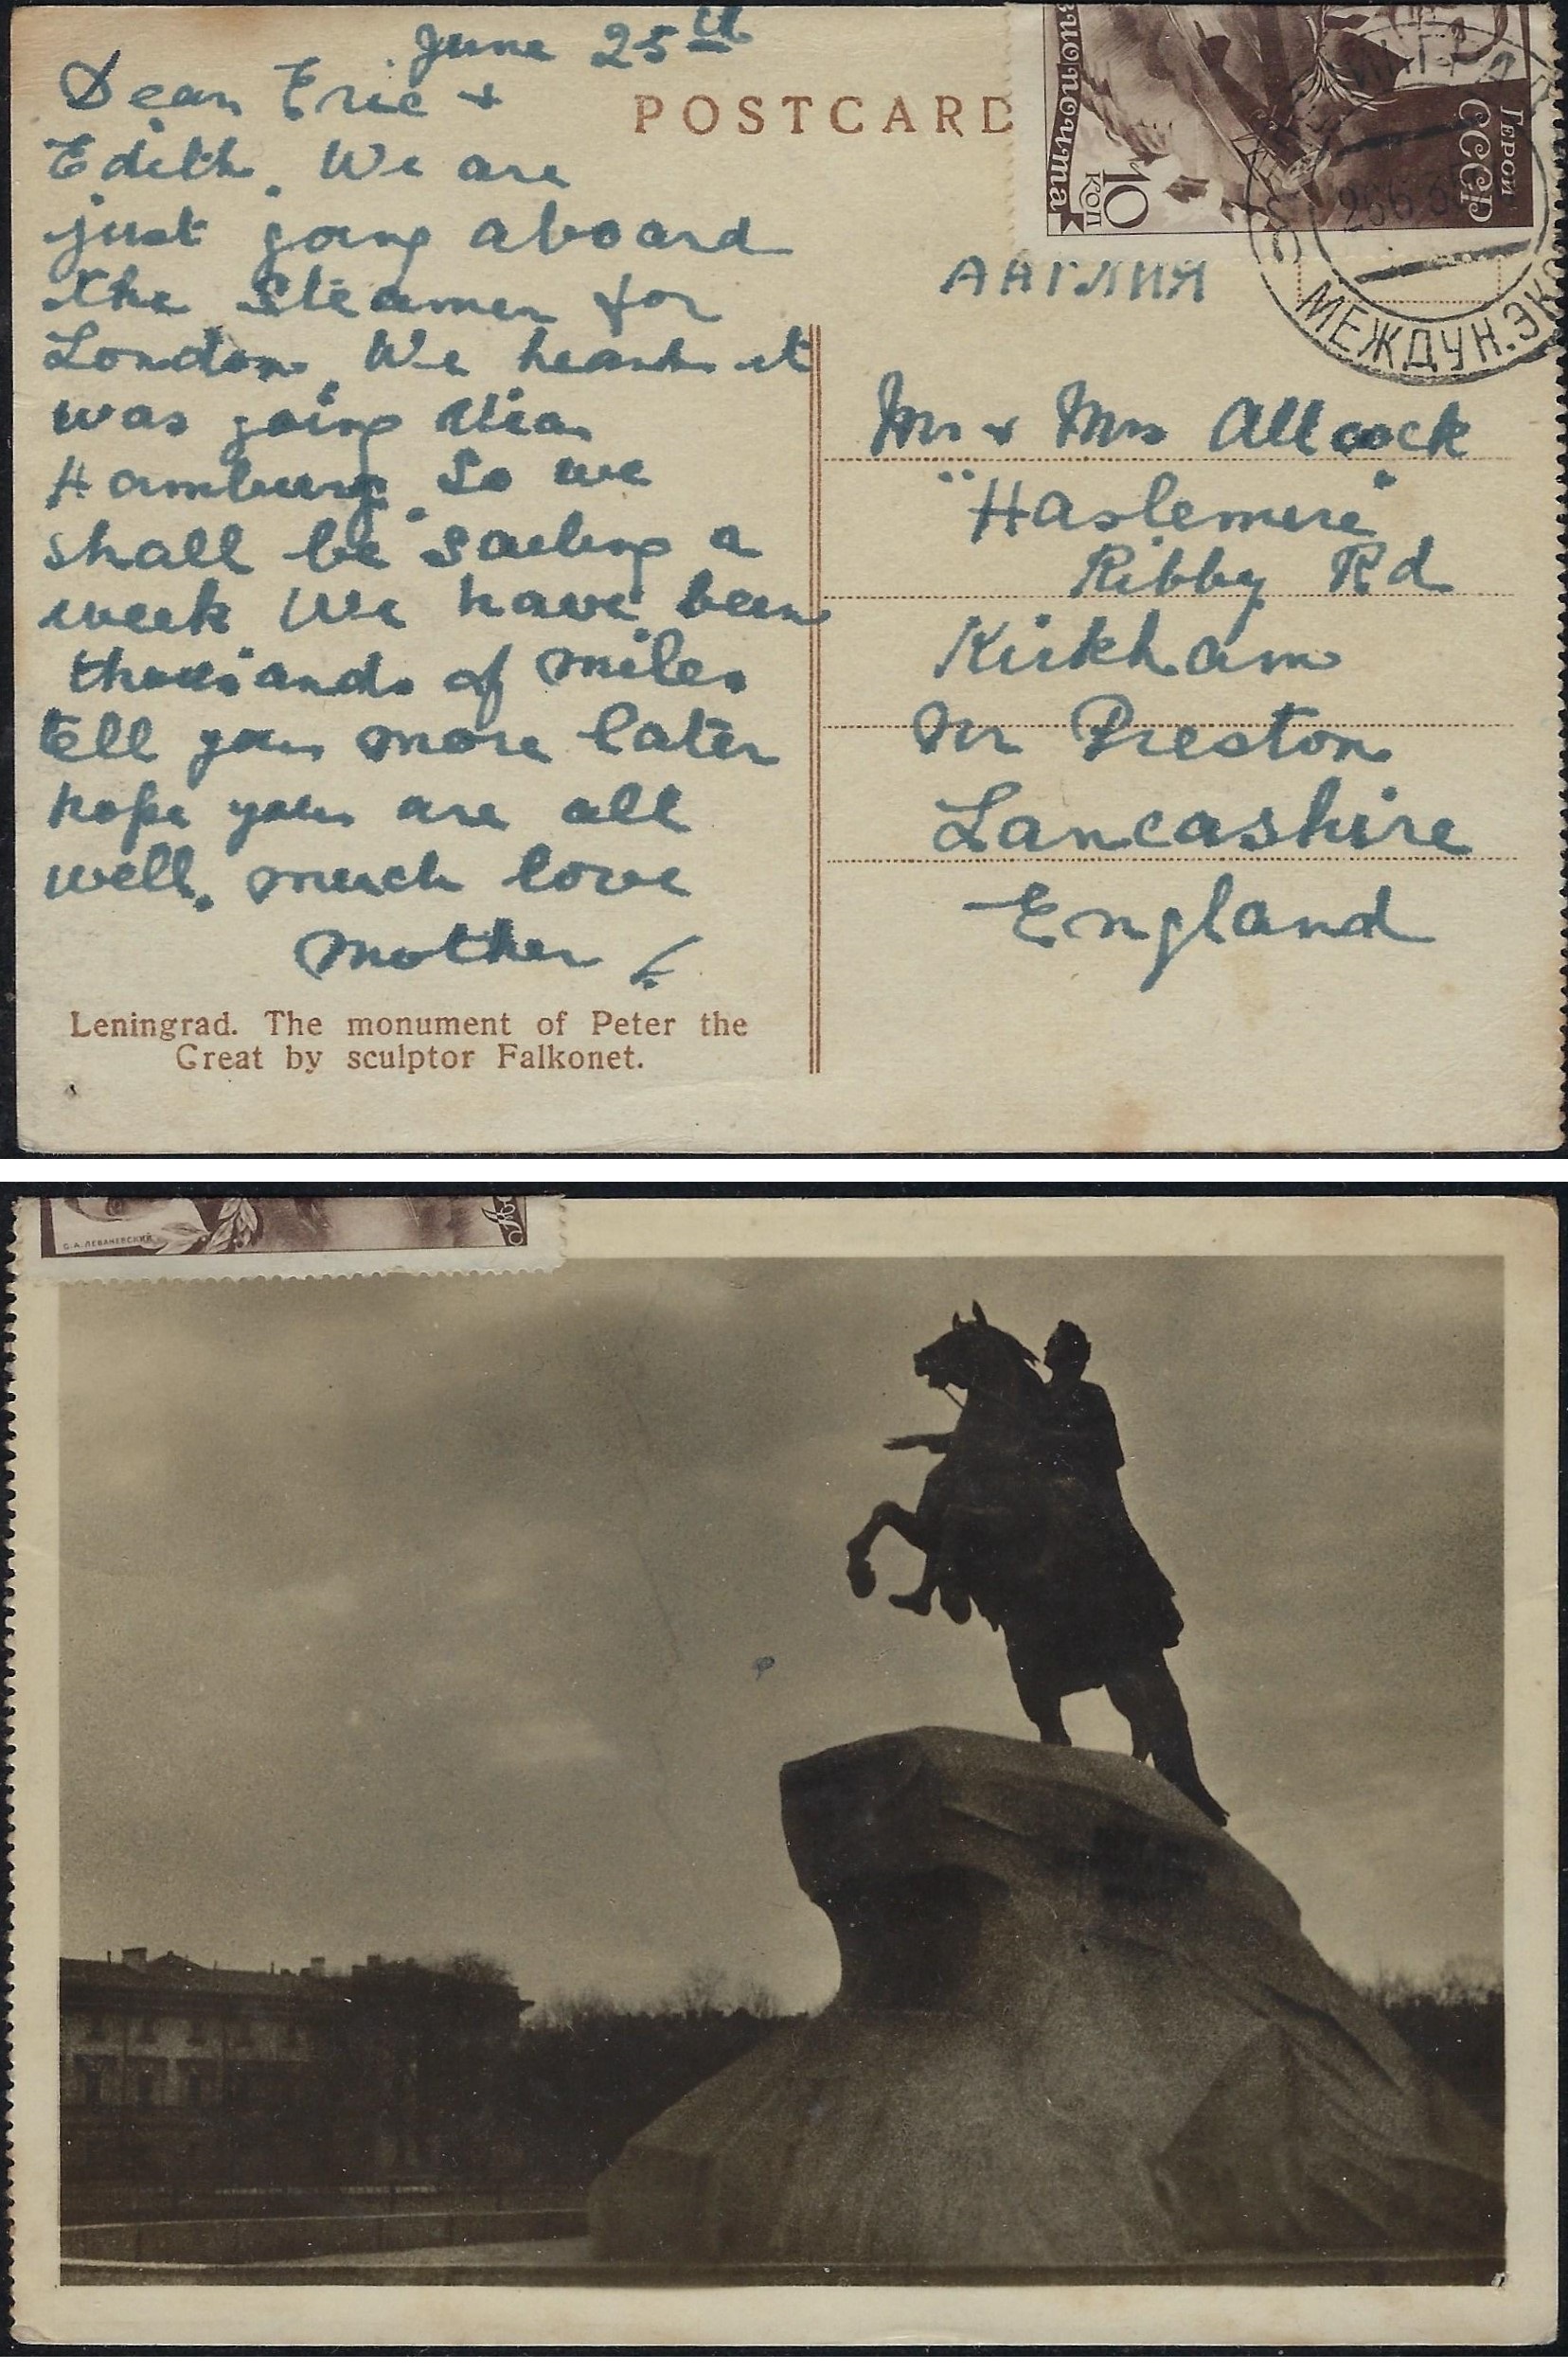 June 25th
Dear Eric +
Edith. We are
just going aboard
the Steamer for
London. We heard it
was going via
Hamburg. So we
shall be sailing a
week We have been
thousands of miles
tell you more later
hope you are all
well. much love
Mother
Leningrad. The monument of Peter the
Great by sculptor Falkonet.
POSTCARD
10
КОП
ГЕРОЙ
СССР
МЕЖДУН. ЭК
АНГЛИЯ
Mr + Mrs Allcock
"Haslemere"
Ribby Rd
Kirkham
Nr Preston
Lancashire
England
С.А. ЛЕВАНЕВСКИЙ